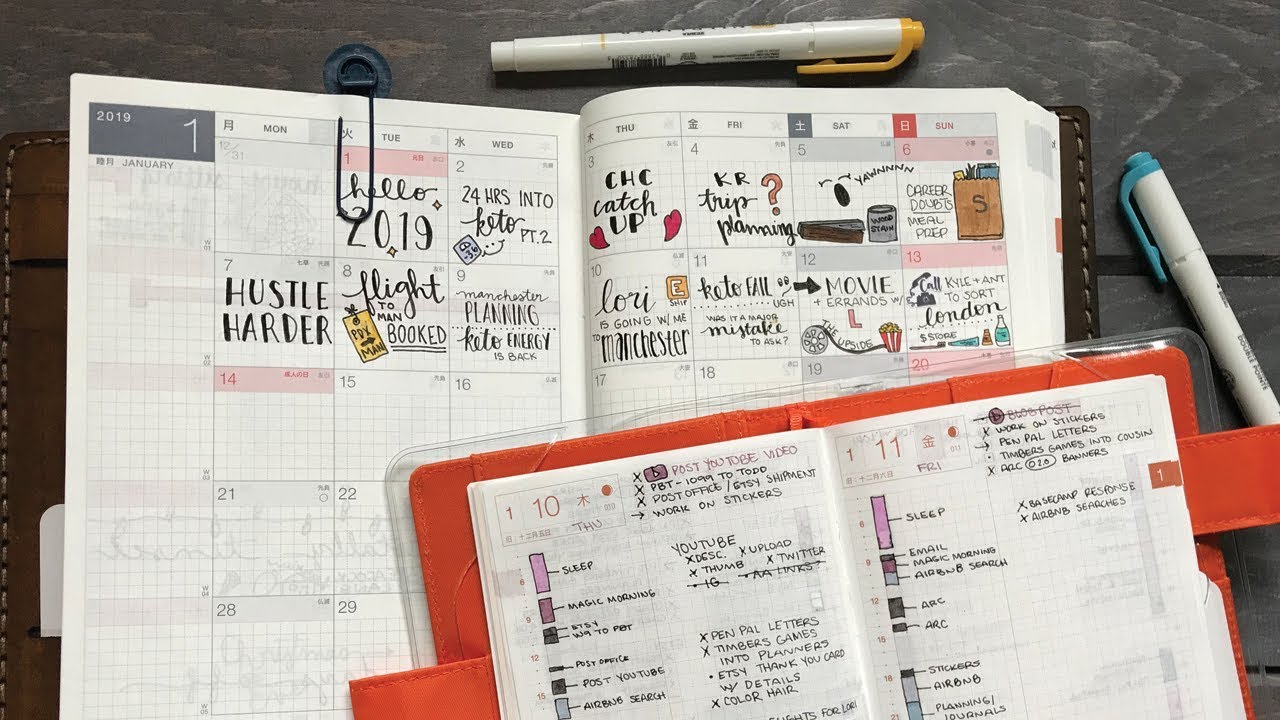 2019 1
睦月 JANUARY
月 MON
火 TUE
水 WED
木 THU
金 FRI
土 SAT
日 SUN
12/31
1 元日
hello
2019
2
24 HRS INTO
keto
PT. 2
3
CHC
catch
UP
4
KR
trip
planning
?
5
YAWNNNN
WOOD
STAIN
6
CAREER
DOUBTS
MEAL
PREP
S
7
HUSTLE
HARDER
8
flight
TO
MAN
BOOKED
PDX
→
MAN
9
manchester
PLANNING
keto ENERGY
IS BACK
10
lori
E
SHIP
IS GOING W/ ME
TO manchester
11
keto FAIL
UGH
WAS IT A MAJOR
mistake
TO ASK?
12
MOVIE
+ ERRANDS W/
L
THE UPSIDE
13
Call KYLE + ANT
TO SORT
london
$ STORE
14 成人の日
15
16
17
18
19
20
21
22
28
29
1 10 木
旧:十二月五日
010
THU
X POST YOUTUBE VIDEO
X PBT - 1099 TO TODD
X POST OFFICE / ETSY SHIPMENT
→ WORK ON STICKERS
SLEEP
MAGIC MORNING
ETSY
W9 TO PBT
POST OFFICE
POST YOUTUBE
AIRBNB SEARCH
6
9
12
15
YOUTUBE
X DESC. X UPLOAD
X THUMB X TWITTER
IG AA LINKS
X PEN PAL LETTERS
X TIMBERS GAMES
INTO PLANNERS
• ETSY THANK YOU CARD
W/ DETAILS
X COLOR HAIR
1 11 金
旧:十二月六日
011
FRI
BLOG POST
X WORK ON STICKERS
→ PEN PAL LETTERS
• TIMBERS GAMES INTO COUSIN
X ARC 020 BANNERS
X BASECAMP RESPONSE
X AIRBNB SEARCHES
1
SLEEP
EMAIL
MAGIC MORNING
AIRBNB SEARCH
ARC
ARC
STICKERS
AIRBNB
PLANNING/
JOURNALS
6
9
12
15
21